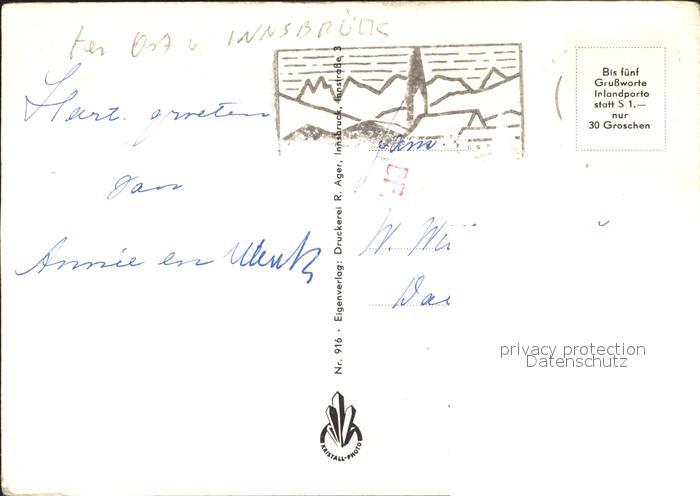 Ort INNSBRÜCK
Hart. groeten
van
Annie en Henk
Fam.
W.
Bis fünf
Grußworte
Inlandporto
statt S 1,—
nur
30 Groschen
Nr. 916 · Eigenverlag: Druckerei R. Ager, Innsbruck, Innstraße 3
KRISTALL-PHOTO
privacy protection
Datenschutz